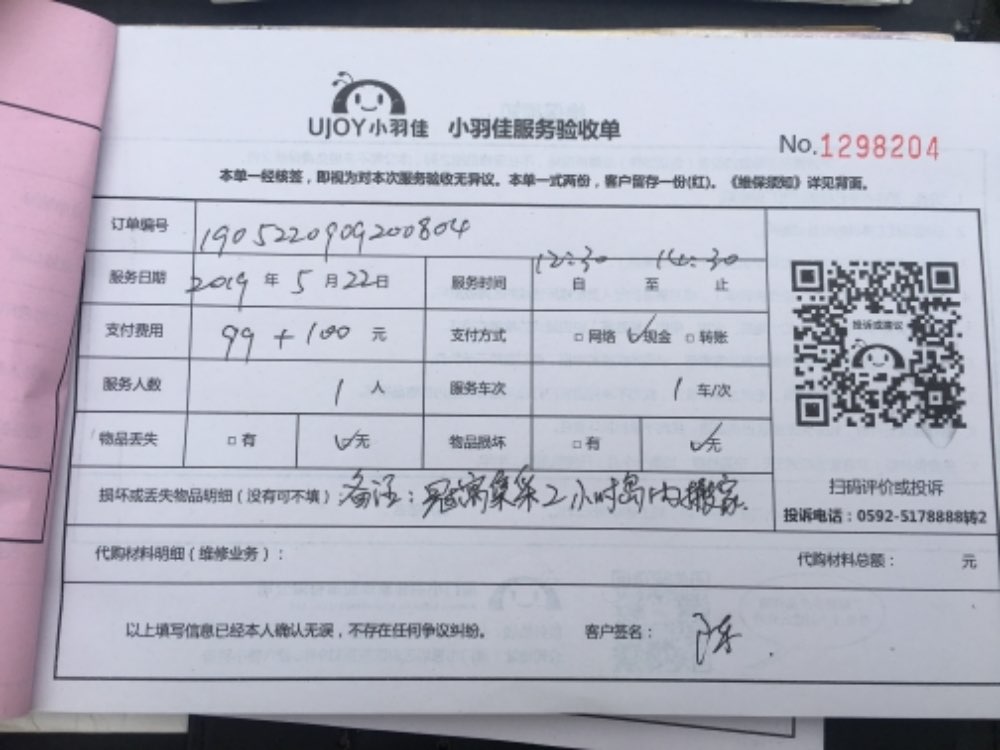 UJOY小羽佳 小羽佳服务验收单
No.1298204
本单一经核签，即视为对本次服务验收无异议。本单一式两份，客户留存一份(红)。《维保须知》详见背面。
订单编号 190522090920​0804
服务日期 2019 年 5 月 22日 服务时间 12:30 14:30 自 至 止
支付费用 99 + 100 元 支付方式 □ 网络 ☑现金 □ 转账
投诉或建议
服务人数 1 人 服务车次 1 车/次
物品丢失 □ 有 ☑无 物品损坏 □ 有 ☑无
扫码评价或投诉
损坏或丢失物品明细（没有可不填） 备注：冠寓集采2小时岛内搬家.
投诉电话：0592-5178888转2
代购材料明细（维修业务）： 代购材料总额： 元
以上填写信息已经本人确认无误，不存在任何争议纠纷。 客户签名： 陈.